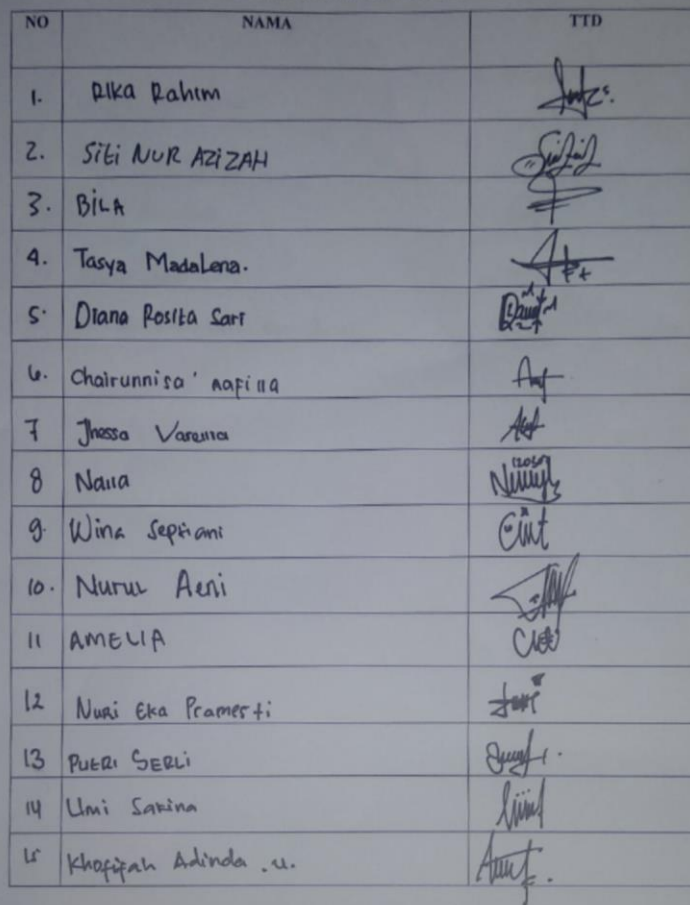 NO NAMA TTD
1. Rika Rahim
2. Siti NUR AZIZAH
3. BILA
4. Tasya Madalena.
5. Diana Rosita Sari
6. Chairunnisa' nafilla
7 Jhessa Varellia
8 Naila
9. Wina Septiani
10. Nurul Aeni
11 AMELIA
12 Nuri Eka Pramesti
13 PUTRI SERLI
14 Umi Sakina
15 Khofifah Adinda .u.